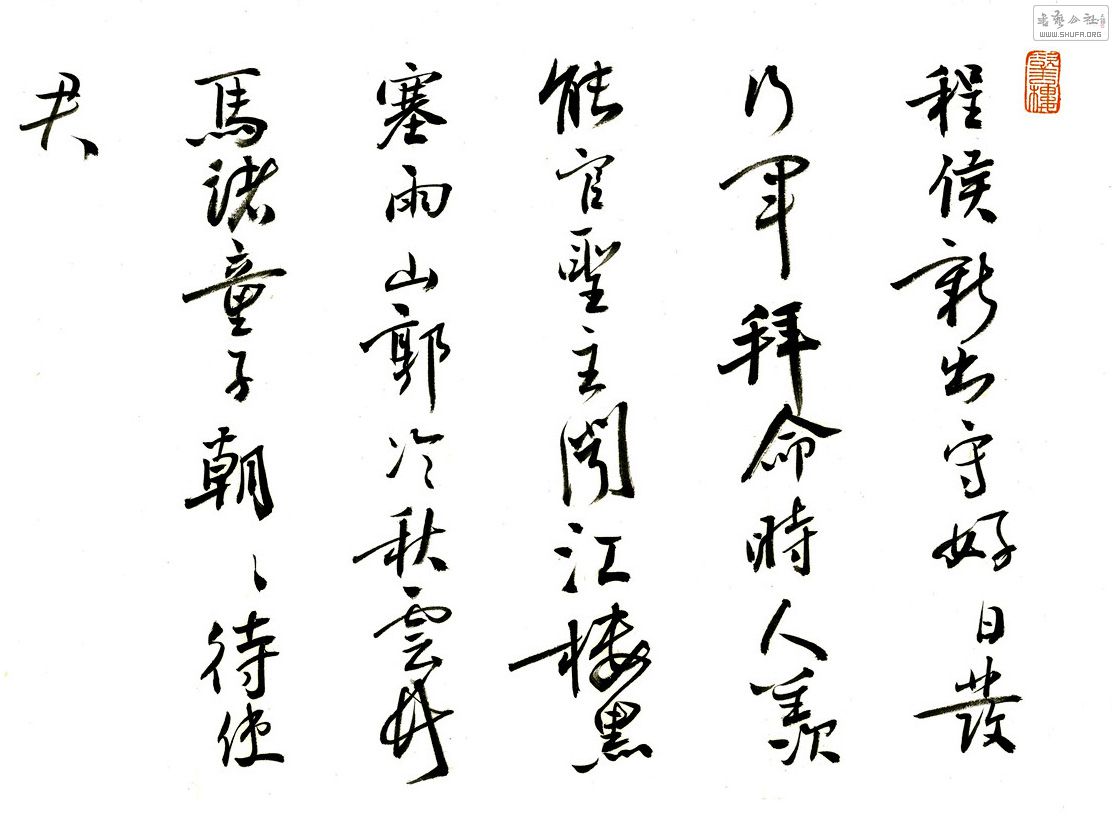 程侯新出守好日發
行軍拜命時人羨
能官聖主聞江樓黑
塞雨山郭冷秋雲竹
馬諸童子朝々待使
君
書藝公社
WWW.SHUFA.ORG